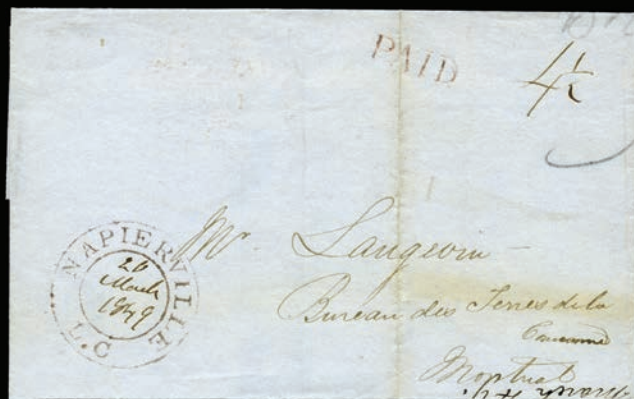 PAID
4½
NAPIERVILLE
L.C
20
March
1849
Mr. Langevin
Bureau des Terres de la
Couronne
Montreal